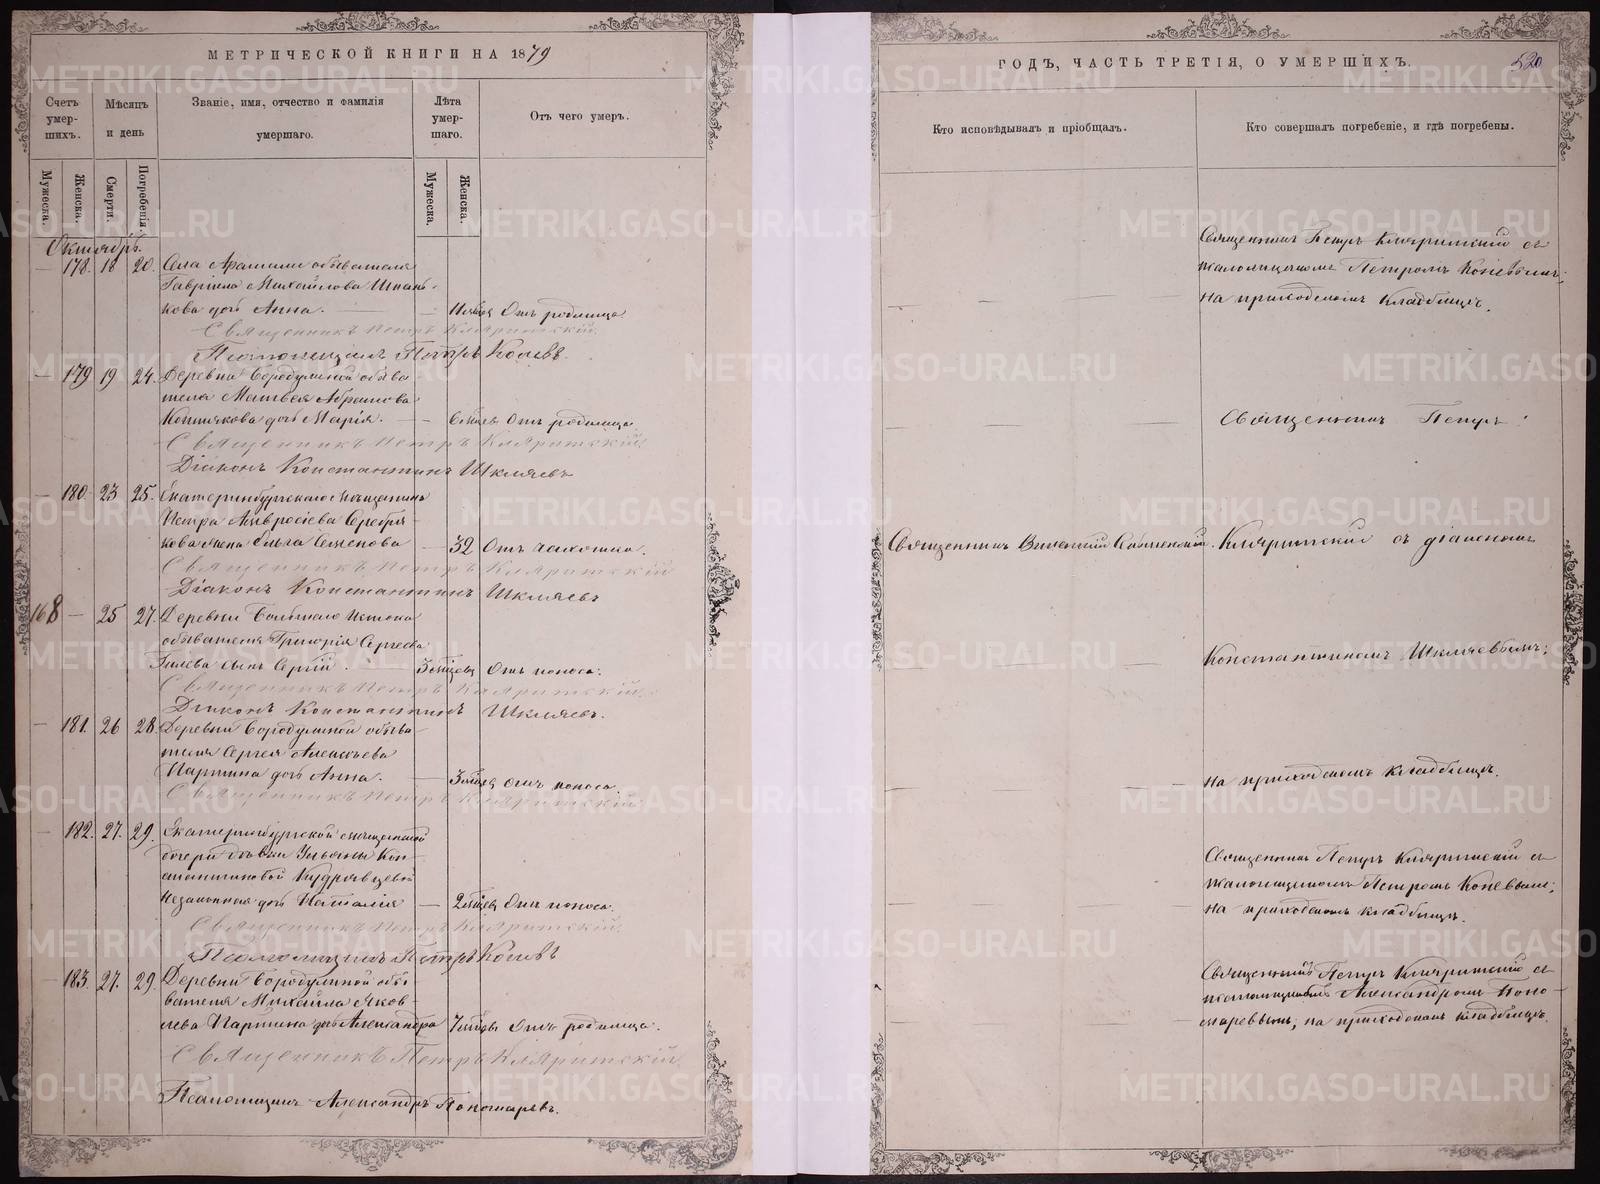 МЕТРИЧЕСКОЙ КНИГИ НА 1879
Счетъ умер-шихъ.
Мѣсяцъ и день
Званіе, имя, отчество и фамилія умершаго.
Лѣта умер-шаго.
Отъ чего умеръ.
Мужеска.
Женска.
Смерти.
Погребенія.
Мужеска.
Женска.
Октябрь.
— 178. 18 20. Села Арамили обывателя
Гавріила Михайлова
кова дочь Анна. — Отъ родимца.
Священникъ Петръ Кляритскій.
Псаломщикъ Петръ Коневъ.
— 179 19 24. Деревни Бородулиной обыва
теля Матвея Абрамова
дочь Марія. — 6 мѣсяц Отъ родимца.
Священникъ Петръ Кляритскій.
Діаконъ Константинъ Шкляевъ
— 180. 23 25. Екатеринбургскаго мѣщанина
Петра Амвросіева Серебря-
кова жена Ольга Семенова — 32 Отъ чахотки.
Священникъ Петръ Кляритскій
Діаконъ Константинъ Шкляевъ
168 — 25 27. Деревни Большаго Истока
обывателя Григорія Сергеева
Гилева сынъ Сергій. Отъ поноса.
Священникъ Петръ Кляритскій.
Діаконъ Константинъ Шкляевъ.
— 181. 26 28. Деревни Бородулиной обыва-
теля Сергея Алексѣева
Паршина дочь Анна. — Отъ поноса.
Священникъ Петръ Кляритскій
— 182. 27. 29. Екатеринбургской мѣщанской
дочери дѣвки Ульяны Кон-
стантиновой Кудрявцевой
незаконная дочь Наталія — Отъ поноса.
Священникъ Петръ Кляритскій.
Псаломщикъ Петръ Коневъ
— 183. 27. 29. Деревни Бородулиной обы-
вателя Михайла Яков-
лева Паршина дочь Александра Отъ родимца.
Священникъ Петръ Кляритскій.
Псаломщикъ Александръ Пономаревъ.
ГОДЪ, ЧАСТЬ ТРЕТІЯ, О УМЕРШИХЪ.
520
Кто исповѣдывалъ и пріобщалъ.
Кто совершалъ погребеніе, и гдѣ погребены.
Священникъ Петръ Кляритскій съ
псаломщикомъ Петромъ Коневымъ;
на приходскомъ кладбищѣ.
Священникъ Петръ
Священникъ
Кляритскій съ діакономъ
Константиномъ Шкляевымъ;
на приходскомъ кладбищѣ.
Священникъ Петръ Кляритскій съ
псаломщикомъ Петромъ Коневымъ;
на приходскомъ кладбищѣ.
Священникъ Петръ Кляритскій съ
псаломщикомъ Александромъ Поно-
маревымъ, на приходскомъ кладбищѣ.
METRIKI.GASO-URAL.RU